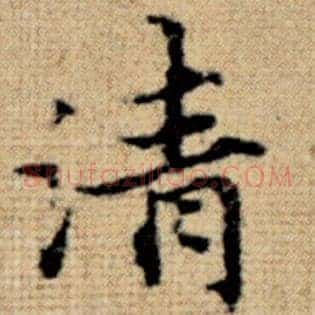 清
Shufaziliao.com